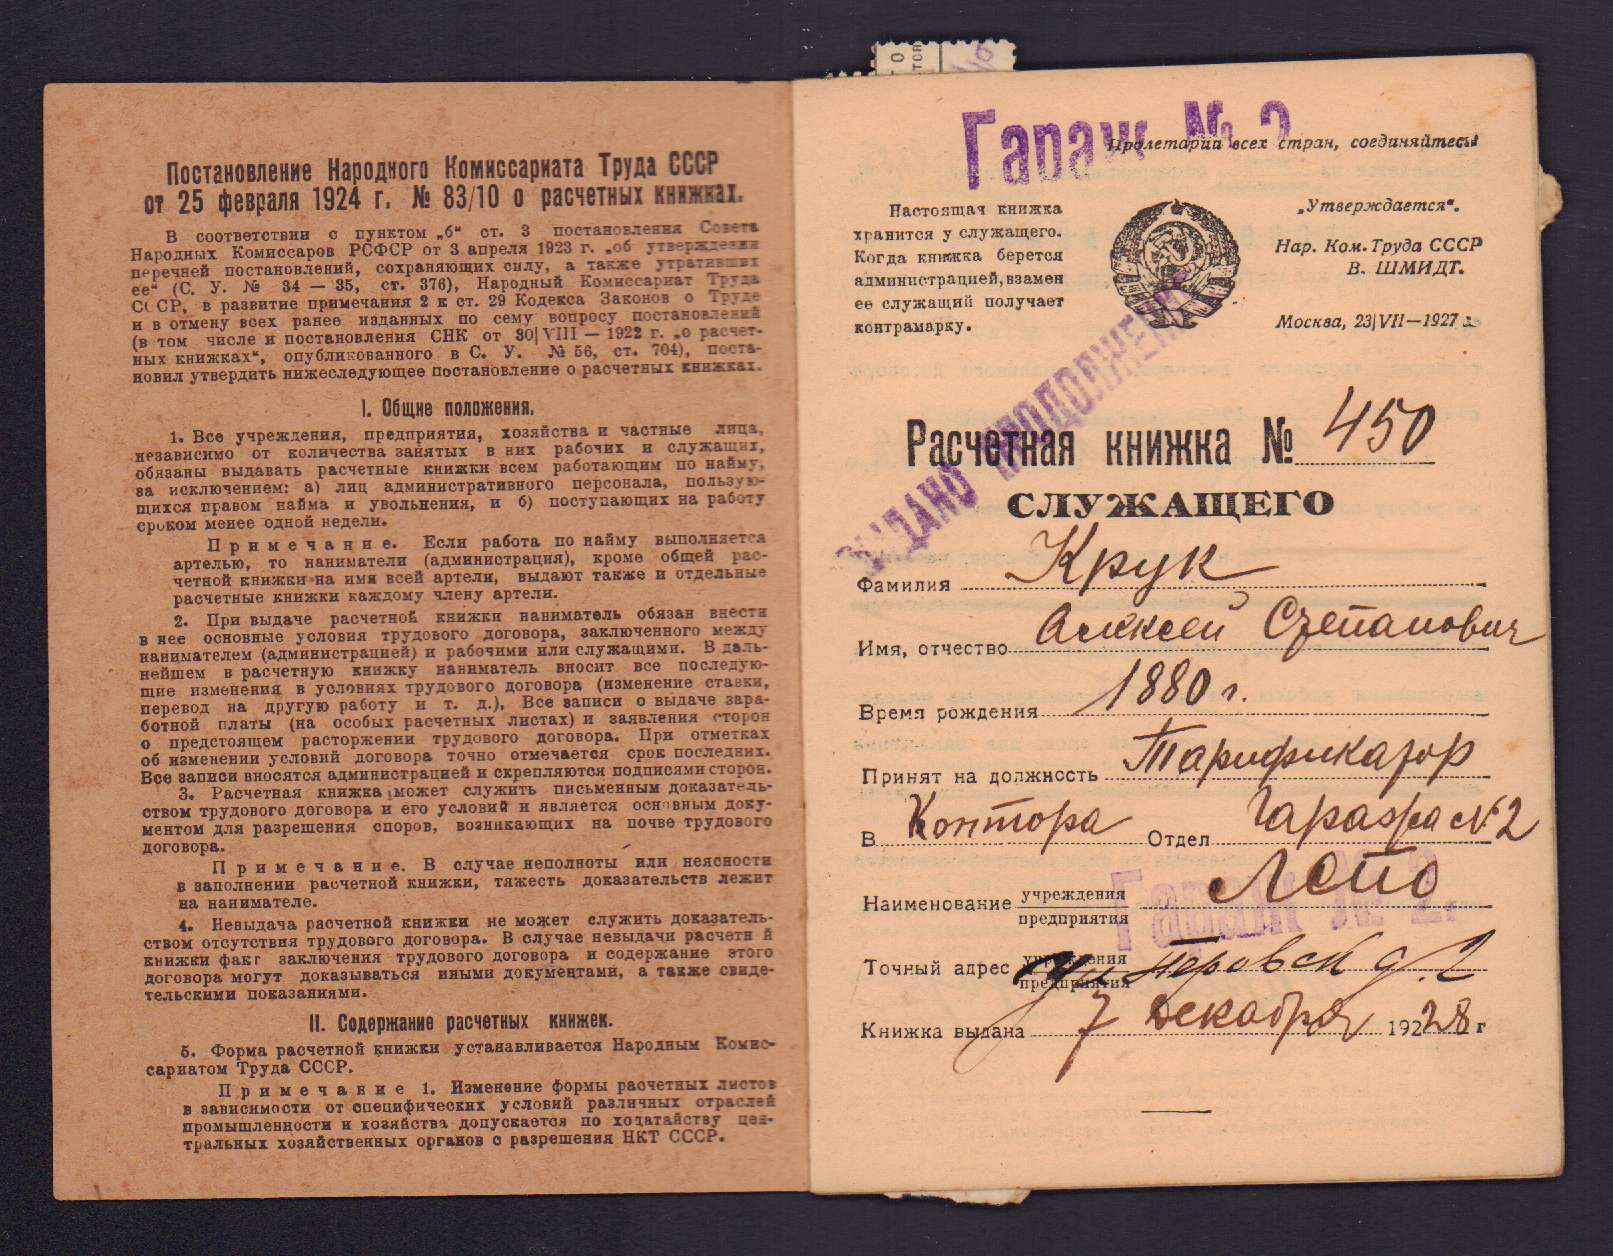 Постановление Народного Комиссариата Труда СССР
от 25 февраля 1924 г. № 83/10 о расчетных книжках.
В соответствии с пунктом „б“ ст. 3 постановления Совета
Народных Комиссаров РСФСР от 3 апреля 1923 г. „об утверждении
перечней постановлений, сохраняющих силу, а также утративших
ее“ (С. У. № 34 — 35, ст. 376), Народный Комиссариат Труда
СССР, в развитие примечания 2 к ст. 29 Кодекса Законов о Труде
и в отмену всех ранее изданных по сему вопросу постановлений
(в том числе и постановления СНК от 30|VIII — 1922 г. „о расчет-
ных книжках“, опубликованного в С. У. № 56, ст. 704), поста-
новил утвердить нижеследующее постановление о расчетных книжках.
I. Общие положения.
1. Все учреждения, предприятия, хозяйства и частные лица,
независимо от количества занятых в них рабочих и служащих,
обязаны выдавать расчетные книжки всем работающим по найму,
за исключением: а) лиц административного персонала, пользую-
щихся правом найма и увольнения, и б) поступающих на работу
сроком менее одной недели.
Примечание. Если работа по найму выполняется
артелью, то наниматели (администрация), кроме общей рас-
четной книжки на имя всей артели, выдают также и отдельные
расчетные книжки каждому члену артели.
2. При выдаче расчетной книжки наниматель обязан внести
в нее основные условия трудового договора, заключенного между
нанимателем (администрацией) и рабочими или служащими. В даль-
нейшем в расчетную книжку наниматель вносит все последую-
щие изменения в условиях трудового договора (изменение ставки,
перевод на другую работу и т. д.). Все записи о выдаче зара-
ботной платы (на особых расчетных листах) и заявления сторон
о предстоящем расторжении трудового договора. При отметках
об изменении условий договора точно отмечается срок последних.
Все записи вносятся администрацией и скрепляются подписями сторон.
3. Расчетная книжка может служить письменным доказатель-
ством трудового договора и его условий и является основным доку-
ментом для разрешения споров, возникающих на почве трудового
договора.
Примечание. В случае неполноты или неясности
в заполнении расчетной книжки, тяжесть доказательств лежит
на нанимателе.
4. Невыдача расчетной книжки не может служить доказатель-
ством отсутствия трудового договора. В случае невыдачи расчетн й
книжки факт заключения трудового договора и содержание этого
договора могут доказываться иными документами, а также свиде-
тельскими показаниями.
II. Содержание расчетных книжек.
5. Форма расчетной книжки устанавливается Народным Комис-
сариатом Труда СССР.
Примечание 1. Изменение формы расчетных листов
в зависимости от специфических условий различных отраслей
промышленности и хозяйства допускается по ходатайству цен-
тральных хозяйственных органов с разрешения НКТ СССР.
Гараж № 2
Пролетарии всех стран, соединяйтесь!
Настоящая книжка
хранится у служащего.
Когда книжка берется
администрацией, взамен
ее служащий получает
контрамарку.
„Утверждается“.
Нар. Ком. Труда СССР
В. ШМИДТ.
Москва, 23|VII—1927 г.
ВЫДАНО ПРОДОЛЖЕНИЕ
Расчетная книжка № 450
СЛУЖАЩЕГО
Фамилия Крук
Имя, отчество Алексей Степанович
Время рождения 1880 г.
Принят на должность Тарификатор
В Контора Отдел Гаража № 2
Наименование учреждения предприятия ЛОТО
Гараж № 2.
Точный адрес учреждения предприятия ул. Перовск д. 2
Книжка выдана 7 Декабря 1928 г